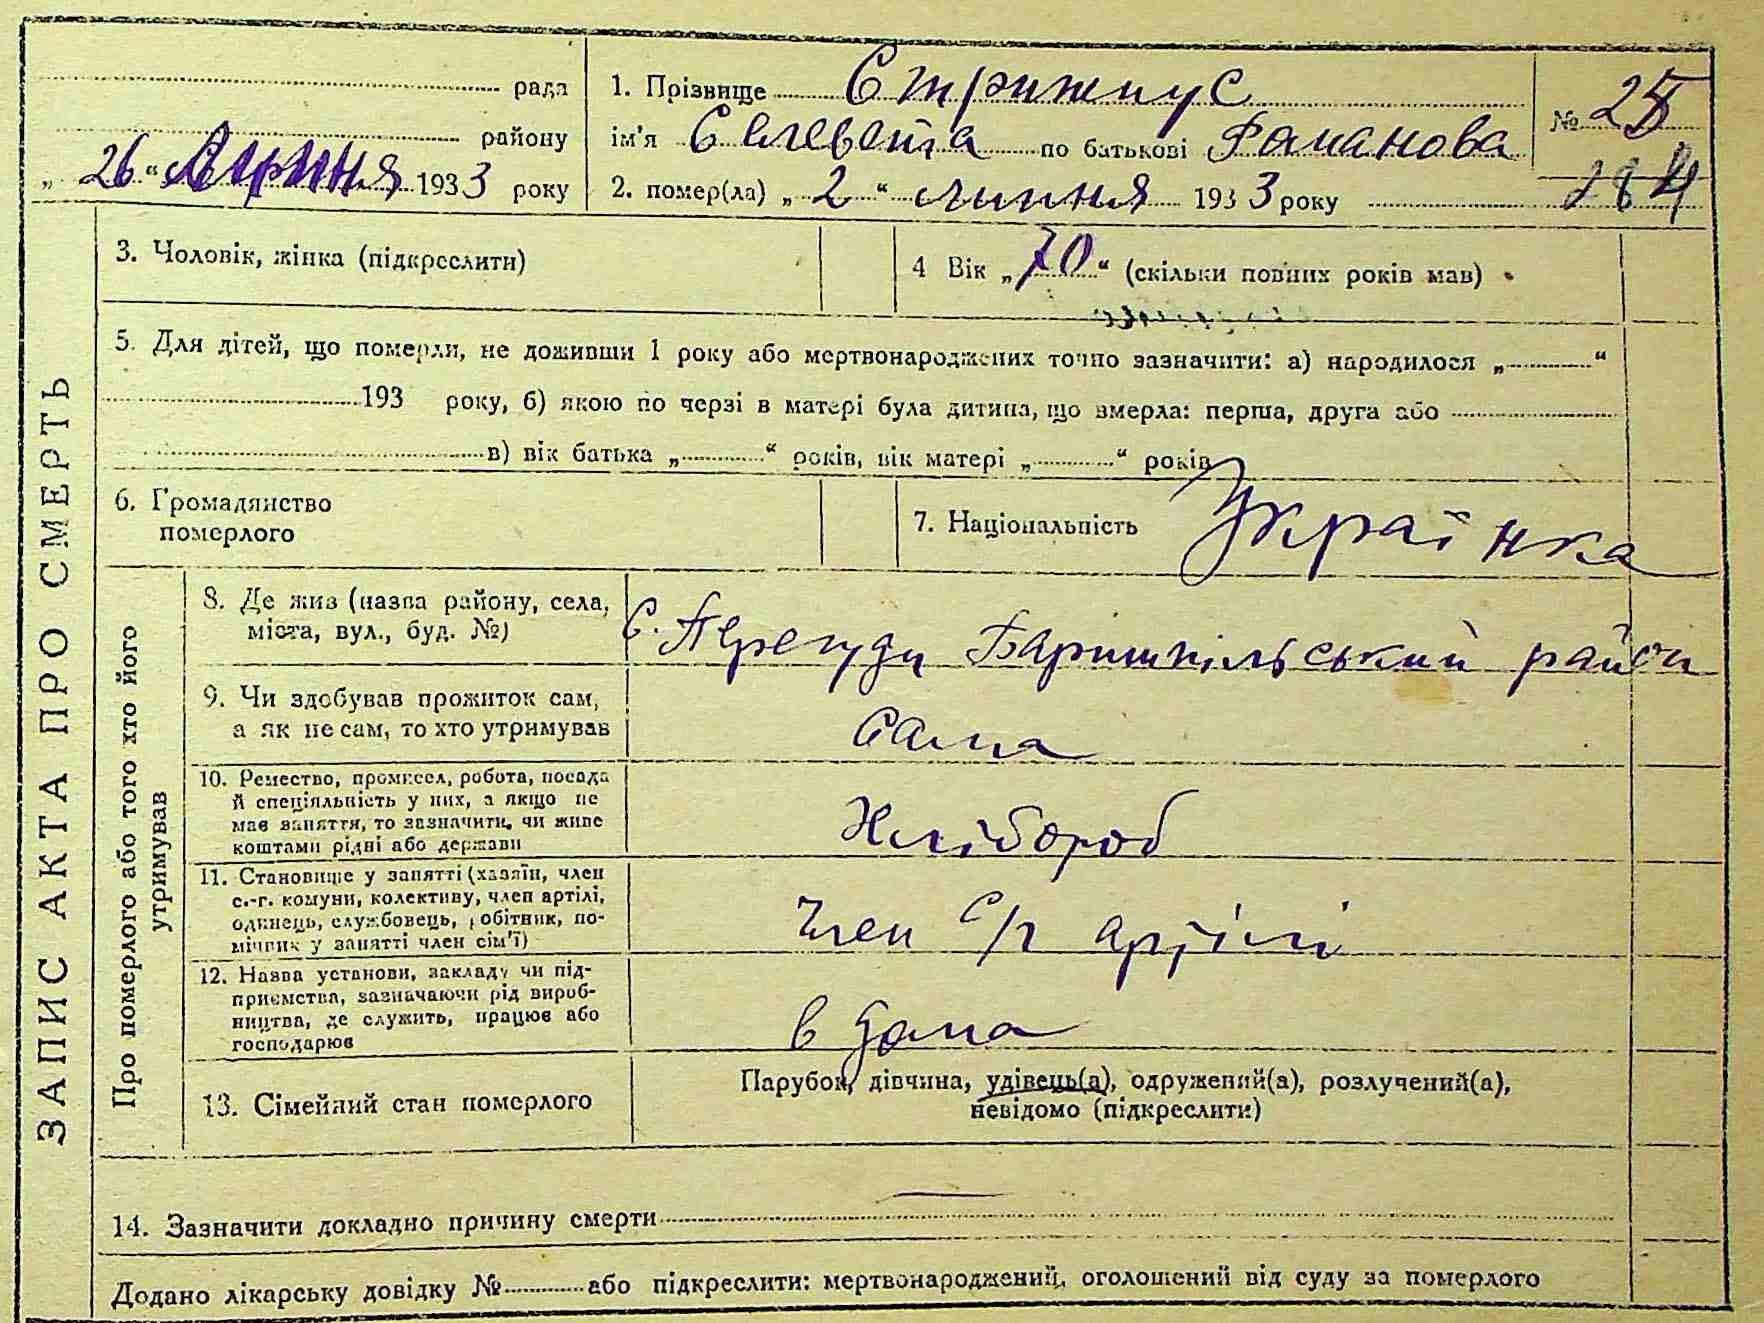 рада
району
„ 26 “ 1933 року
1. Прізвище Стрижпус
ім'я Єлевета по батькові Романова
2. помер(ла) „ 2 “ липня 1933 року
№ 25
184
ЗАПИС АКТА ПРО СМЕРТЬ
3. Чоловік, жінка (підкреслити)
4 Вік „ 70 “ (скільки повних років мав)
5. Для дітей, що померли, не доживши 1 року або мертвонароджених точно зазначити: а) народилося „ “
193 року, б) якою по черзі в матері була дитина, що вмерла: перша, друга або
в) вік батька „ “ років, вік матері „ “ років
6. Громадянство
померлого
7. Національність Українка
Про померлого або того хто його
утримував
8. Де жив (назва району, села,
міста, вул., буд. №)
с. Перегуди Баришпільський район
9. Чи здобував прожиток сам,
а як не сам, то хто утримував
Сама
10. Ремество, промисел, робота, посада
й спеціяльність у них, а якщо не
має заняття, то зазначити, чи живе
коштами рідні або держави
Хлібороб
11. Становище у занятті (хазяїн, член
с.-г. комуни, колективу, член артілі,
одинець, службовець, робітник, по-
мічник у занятті член сім'ї)
Член с/г артілі
12. Назва установи, закладу чи під-
приємства, зазначаючи рід вироб-
ництва, де служить, працює або
господарює
в дома
13. Сімейний стан померлого
Парубок, дівчина, удівець(а), одружений(а), розлучений(а),
невідомо (підкреслити)
14. Зазначити докладно причину смерти —
Додано лікарську довідку № або підкреслити: мертвонароджений, оголошений від суду за померлого